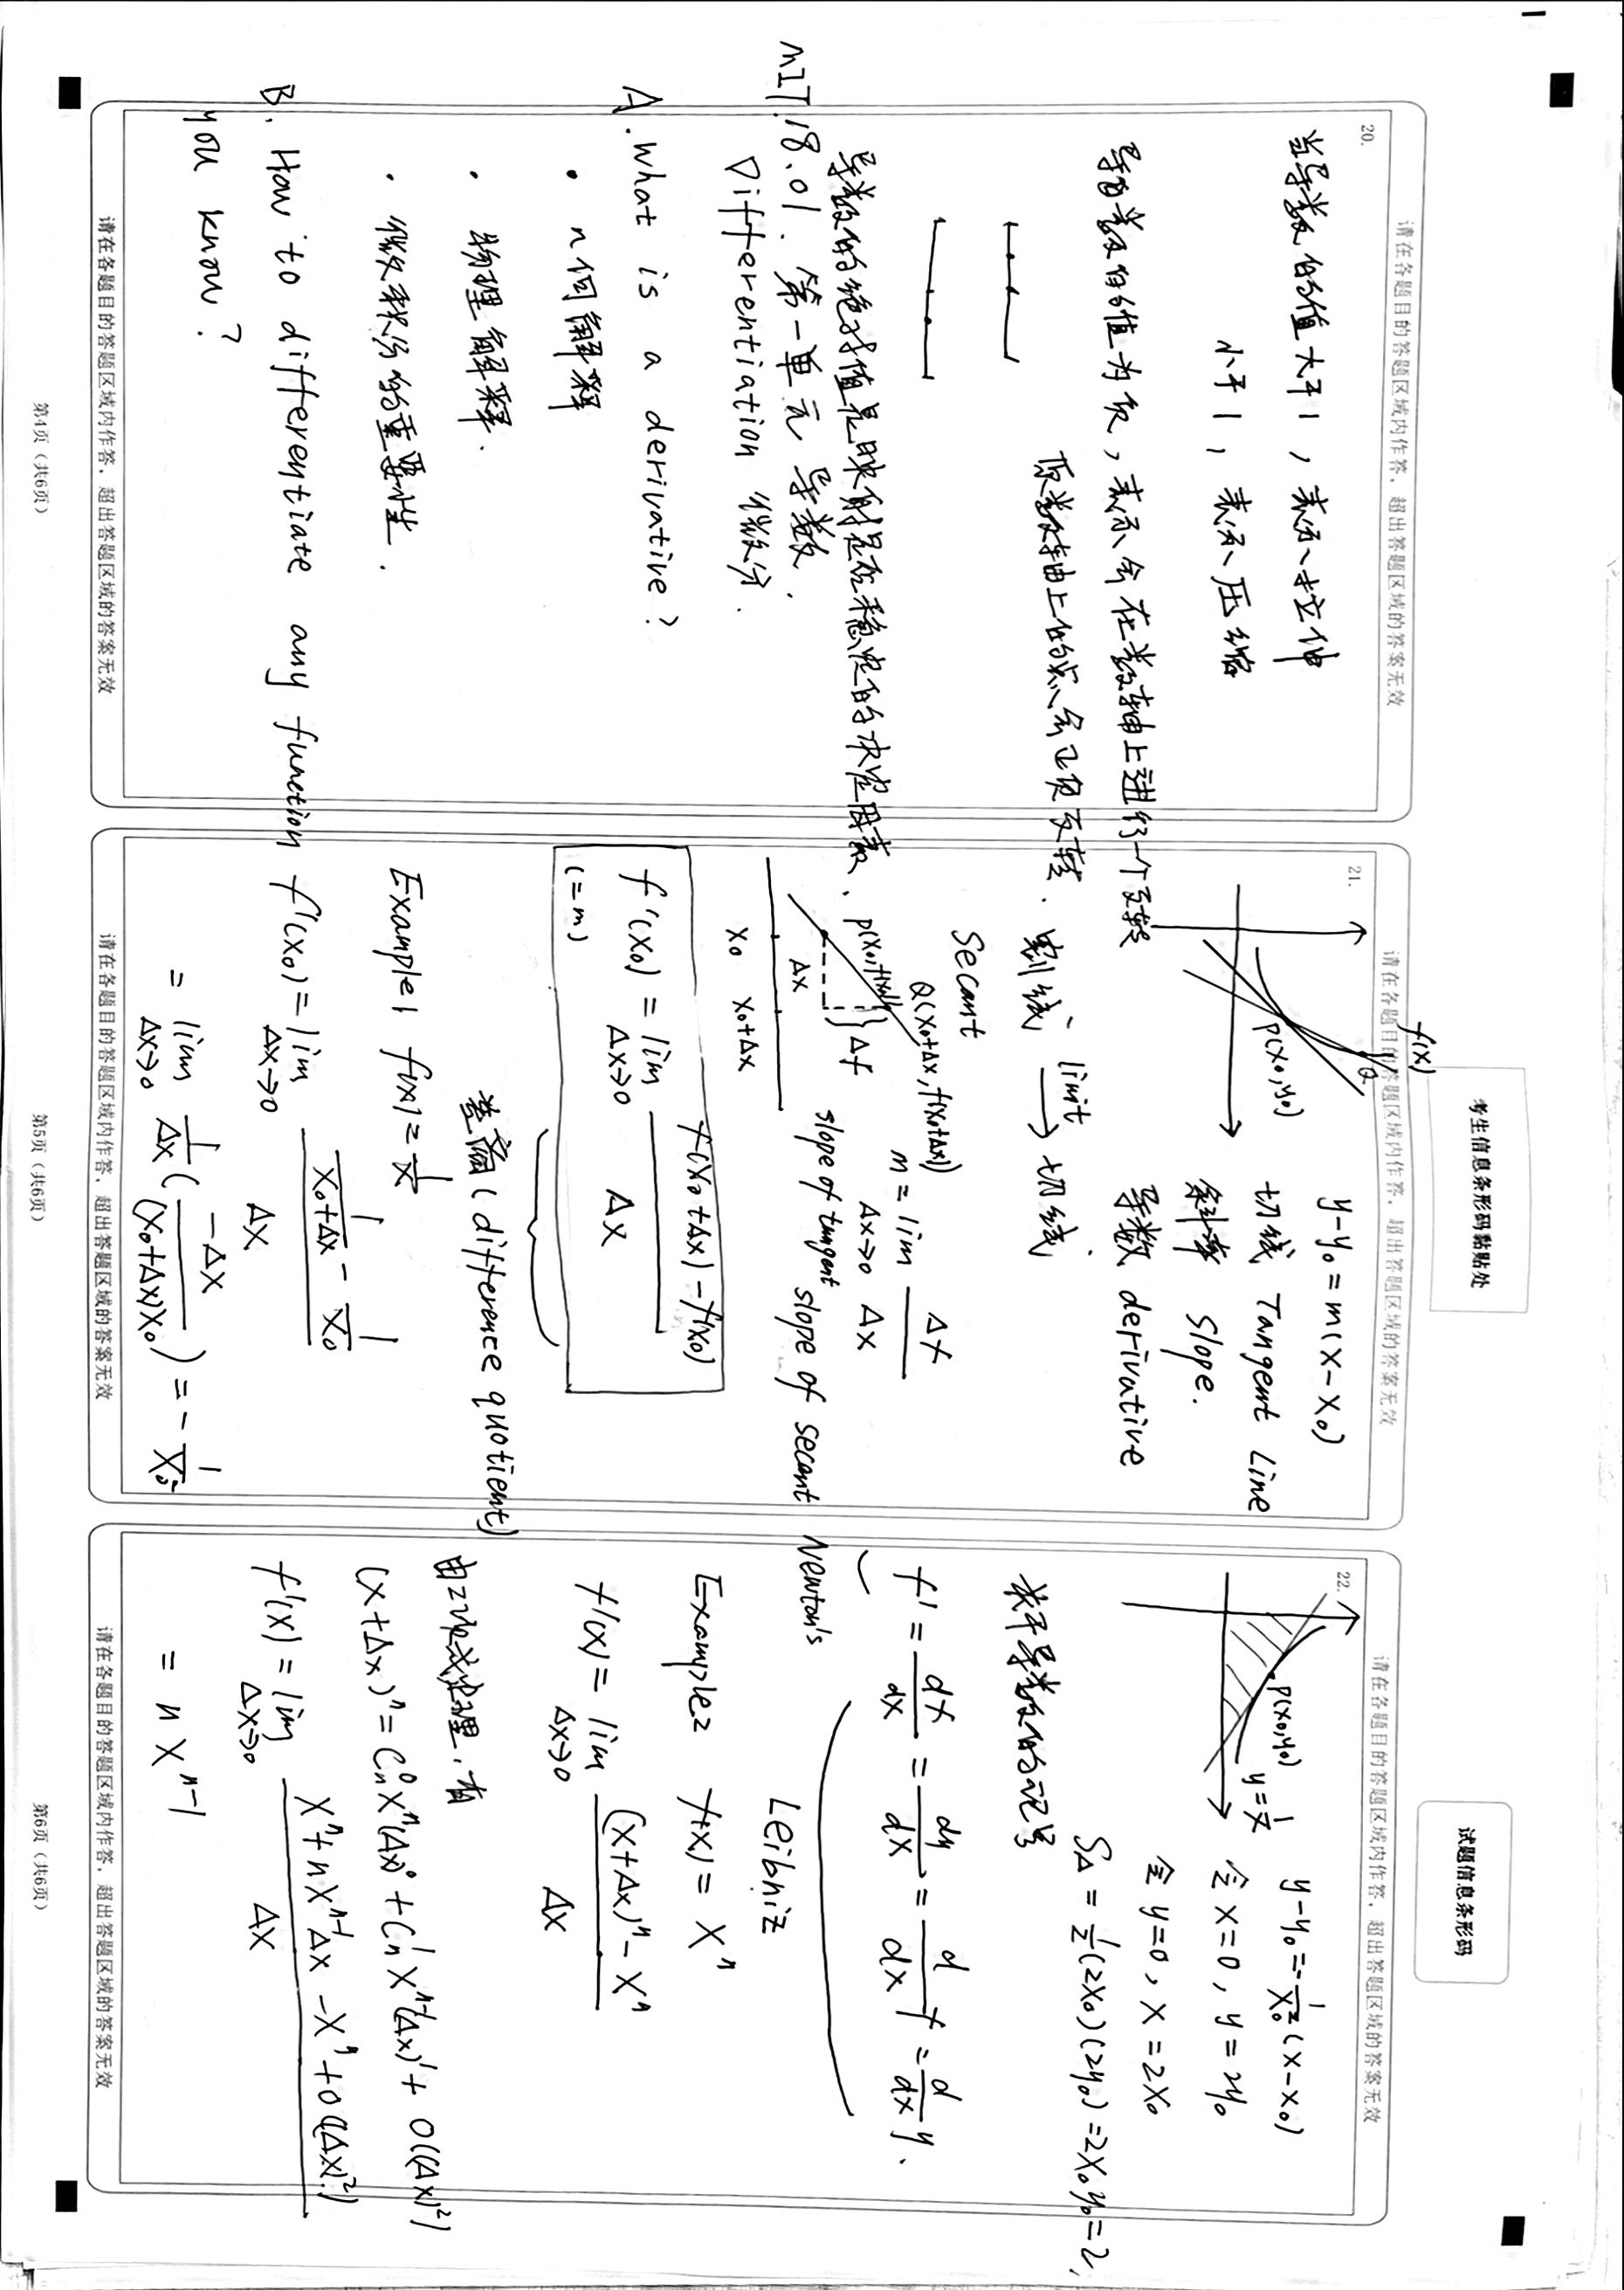 考生信息条形码黏贴处
试题信息条形码
请在各题目的答题区域内作答，超出答题区域的答案无效
20.
当导数的值大于1，表示拉伸
小于1，表示压缩
导函数的值为负，表示会在数轴上进行一个反转
原数轴上的点会正负反转.
导数的绝对值是映射是否稳定的决定因素.
MIT.18.01.第一单元 导数.
Differentiation 微分.
A.what is a derivative?
• 几何解释
• 物理解释.
• 微积分的重要性.
B. How to differentiate any function
you know?
请在各题目的答题区域内作答，超出答题区域的答案无效
第4页（共6页）
请在各题目的答题区域内作答，超出答题区域的答案无效
21.
f(x)
Q
P(x₀,y₀)
y-y₀=m(x-x₀)
切线 Tangent Line
斜率 Slope.
导数 derivative
割线 limit → 切线
Secant
Q(x₀+Δx,f(x₀+Δx))
P(x₀,f(x₀))
Δf
Δx
x₀ x₀+Δx
m = lim Δx→0 Δf/Δx
slope of tangent slope of secant
f'(x₀) = lim Δx→0 (f(x₀+Δx)-f(x₀))/Δx
(=m)
差商(difference quotient)
Example1 f(x)=1/x
f'(x₀)=lim Δx→0 (1/(x₀+Δx) - 1/x₀)/Δx
= lim Δx→0 1/Δx(-Δx/((x₀+Δx)x₀)) = -1/x₀²
请在各题目的答题区域内作答，超出答题区域的答案无效
第5页（共6页）
请在各题目的答题区域内作答，超出答题区域的答案无效
22.
P(x₀,y₀)
y=1/x
y-y₀=-1/x₀²(x-x₀)
令x=0, y=2y₀
令y=0, x=2x₀
SΔ=½(2x₀)(2y₀)=2x₀y₀=2,
关于导数的记号
f' = df/dx = dy/dx = d/dx f = d/dx y.
Newton's
Leibniz
Example2 f(x)=xⁿ
f'(x)=lim Δx→0 ((x+Δx)ⁿ-xⁿ)/Δx
由二项式定理,有
(x+Δx)ⁿ=Cₙ⁰xⁿ(Δx)⁰+Cₙ¹xⁿ⁻¹(Δx)¹+O((Δx)²)
f'(x)=lim Δx→0 (xⁿ+nxⁿ⁻¹Δx-xⁿ+O((Δx)²))/Δx
= nxⁿ⁻¹
请在各题目的答题区域内作答，超出答题区域的答案无效
第6页（共6页）